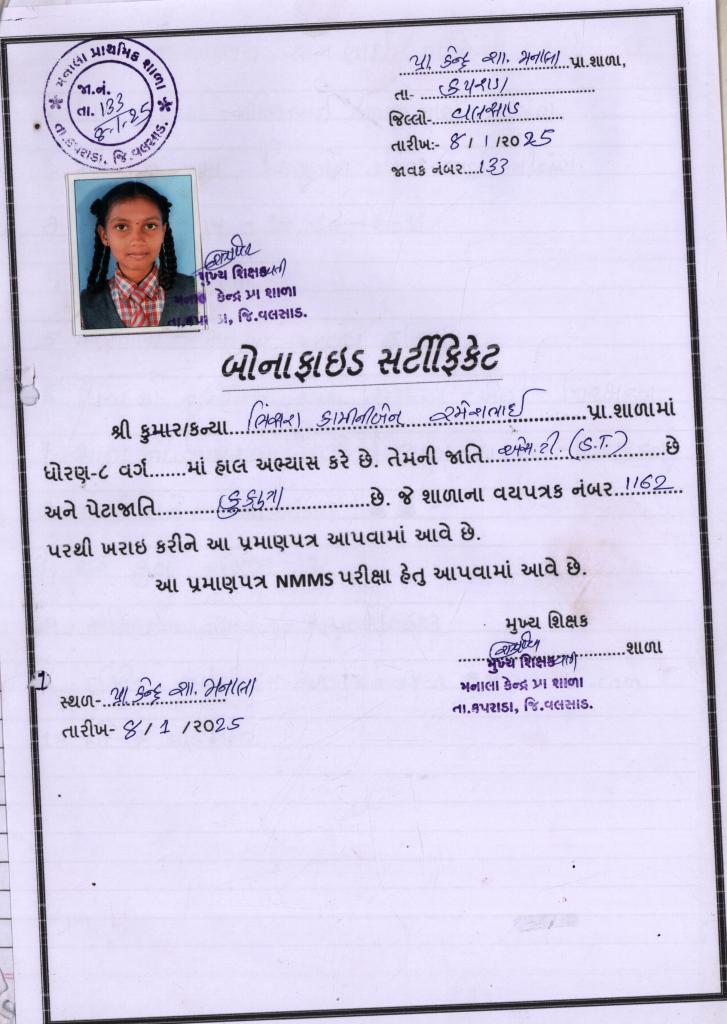 મનાલા પ્રાથમિક શાળા
જા.નં.
તા. 133
8-1-25
તા.કપરાડા, જિ.વલસાડ.
પ્રા. કેન્દ્ર શા. મનાલા પ્રા.શાળા,
તા- કપરાડા
જિલ્લો- વલસાડ
તારીખ:- 8/1/2025
જાવક નંબર...133
મુખ્ય શિક્ષક
મનાલા કેન્દ્ર પ્રા શાળા
તા.કપરાડા, જિ.વલસાડ.
બોનાફાઇડ સર્ટીફિકેટ
શ્રી કુમાર/કન્યા કામીનીબેન રમેશભાઈ પ્રા.શાળામાં
ધોરણ-૮ વર્ગ......માં હાલ અભ્યાસ કરે છે. તેમની જાતિ એસ.ટી. (S.T.) છે
અને પેટાજાતિ કુકણા છે. જે શાળાના વયપત્રક નંબર 1162
પરથી ખરાઇ કરીને આ પ્રમાણપત્ર આપવામાં આવે છે.
આ પ્રમાણપત્ર NMMS પરીક્ષા હેતુ આપવામાં આવે છે.
મુખ્ય શિક્ષક
શાળા
મુખ્ય શિક્ષક
મનાલા કેન્દ્ર પ્રા શાળા
તા.કપરાડા, જિ.વલસાડ.
સ્થળ- પ્રા. કેન્દ્ર શા. મનાલા
તારીખ- 8/1/2025